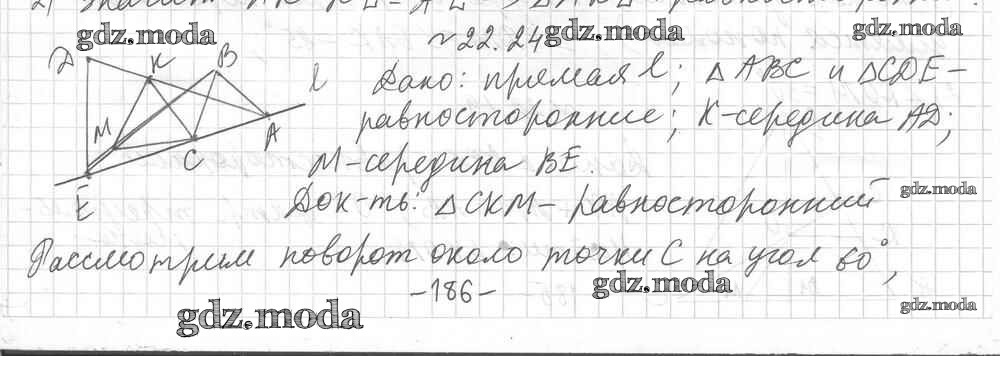 gdz.moda
№22.24
gdz.moda
gdz.moda
D K B l
Дано: прямая l; △ABC и △CDE-
равносторонние; K-середина AD;
M C A
M-середина BE.
E
Док-ть: △CKM- равносторонний
gdz.moda
Рассмотрим поворот около точки C на угол 60°,
-186-
gdz.moda
gdz.moda
gdz.moda